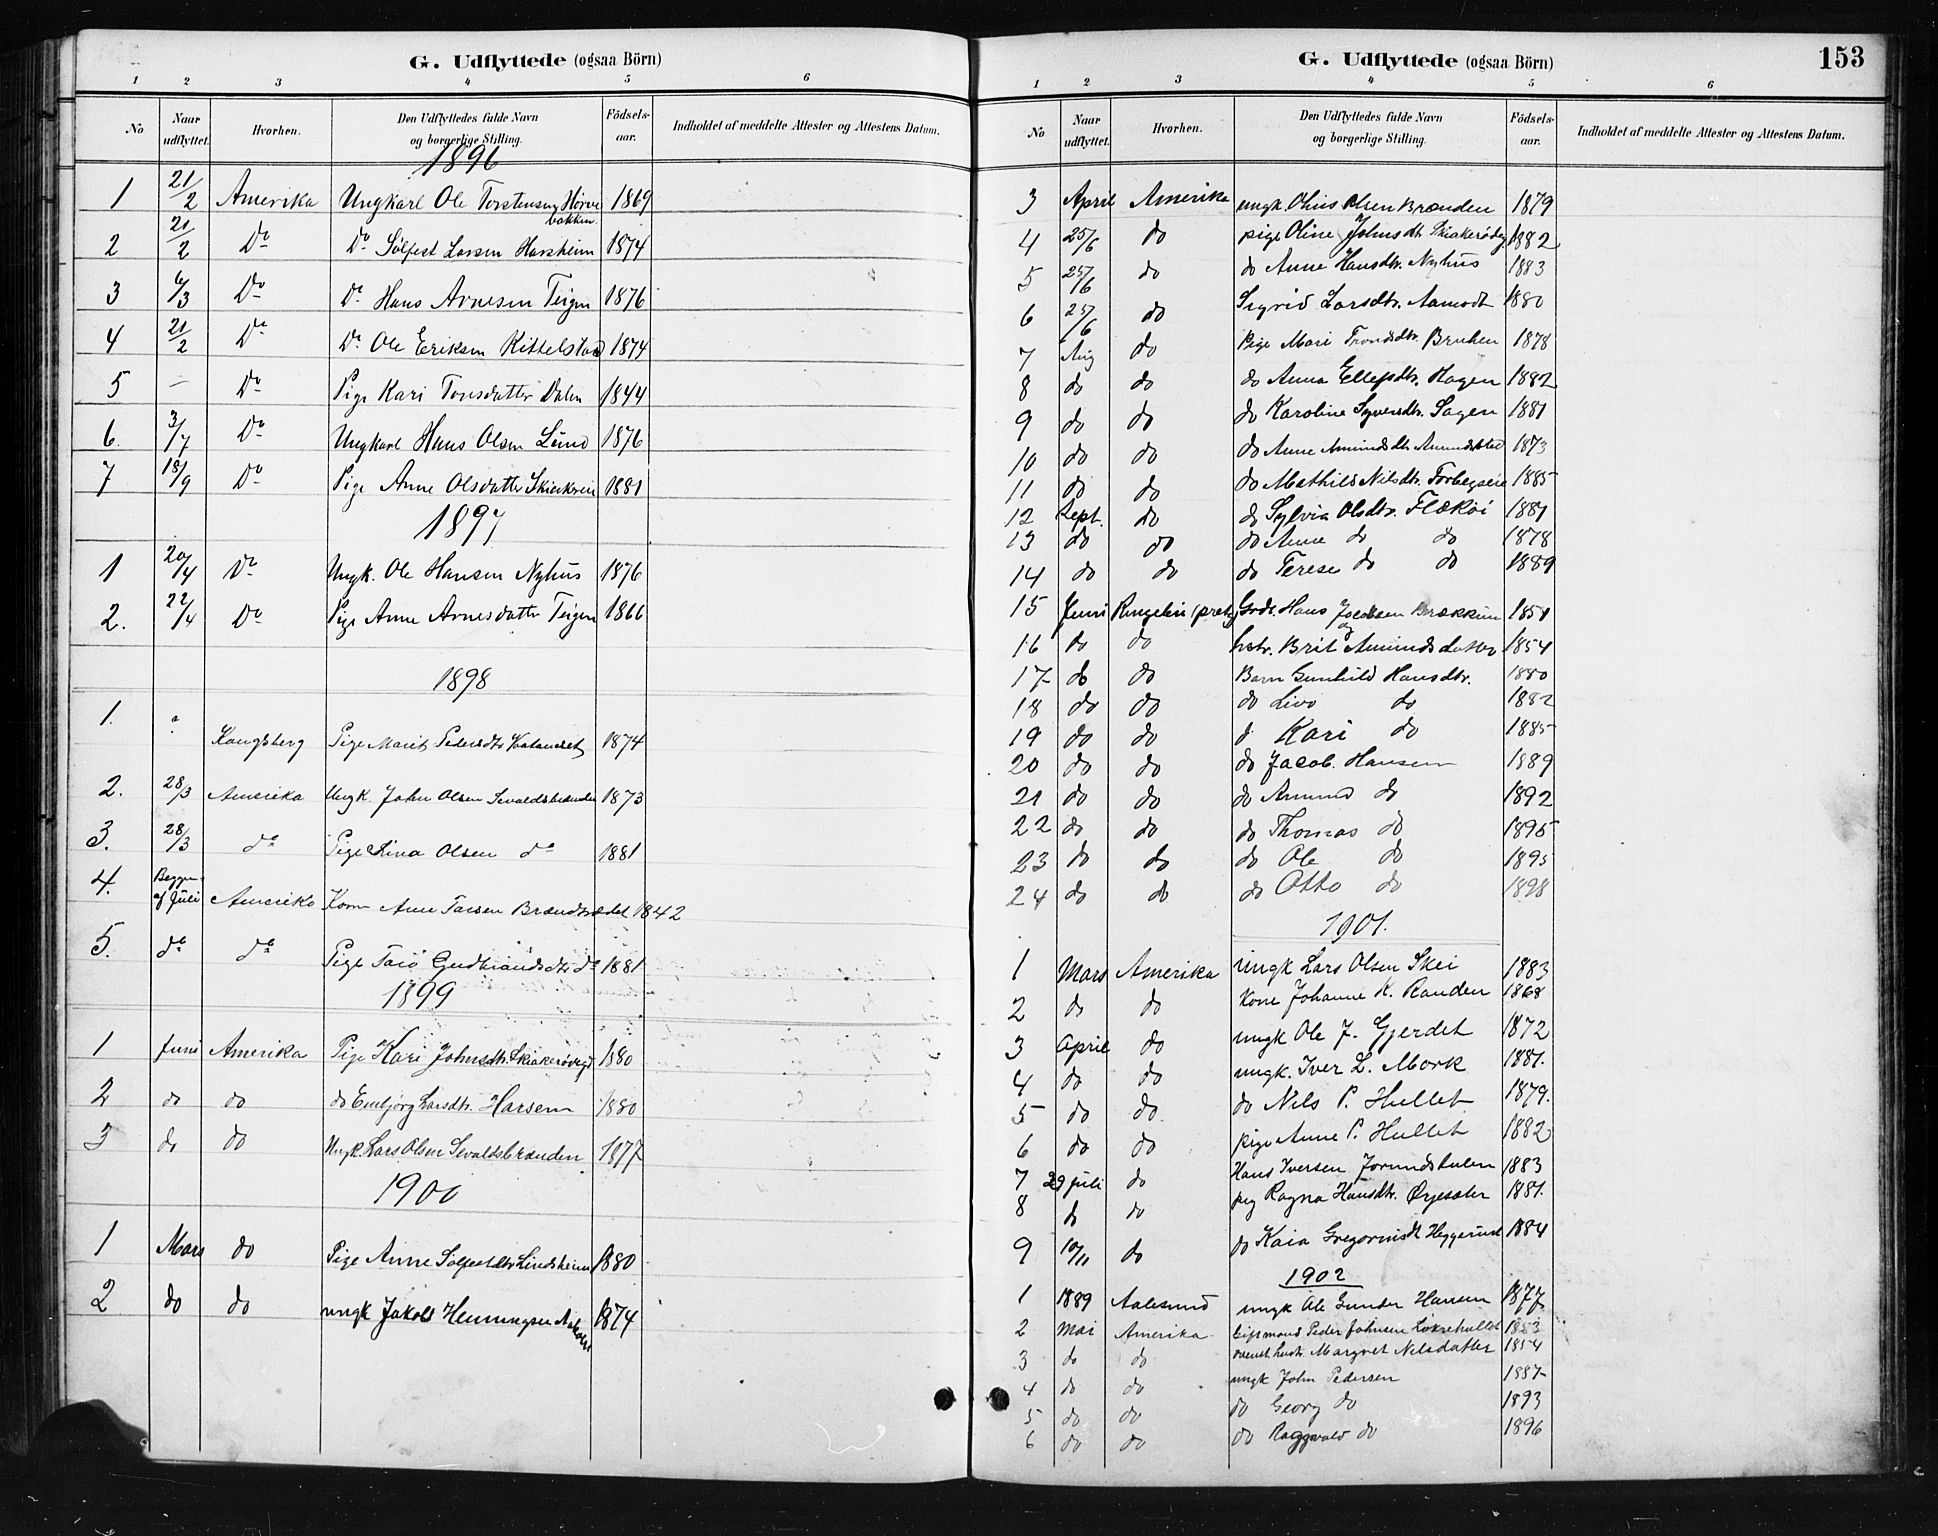 G. Udflyttede (ogsaa Börn)
1 2 3 4 5 6
No Naar udflyttet. Hvorhen. Den Udflyttedes fulde Navn og borgerlige Stilling. Födsels-aar. Indholdet af meddelte Attester og Attestens Datum.
1896
1 21/2 Amerika Ungkarl Ole Torstensen Hørve bakken 1869
2 21/2 Do Do Sølfest Larsen Harsheim 1874
3 6/3 Do Do Hans Arnesen Teigen 1876
4 21/2 Do Do Ole Eriksen Kittelstad 1874
5 – Do Pige Kari Tonsdatter Dalen 1844
6. 3/7 Do Ungkarl Hans Olsen Lund 1876
7 18/9 Do Pige Anne Olsdatter 1881
1897
1 20/4 Do Ungk. Ole Hansen Nyhus 1876
2. 22/4 Do Pige Anne Arnesdatter Teigen 1866
1898
1. ? Kongsberg Pige Marit Pedersdtr 1874
2. 28/3 Amerika Ungk. John Olsen Sevaldsbrænden 1873
3. 28/3 do Pige Lina Olsen do 1881
4. af Juli Amerika Kone Anne 1842
5. do do Pige Gudbrandsdtr do 1881
1899
1 Juni Amerika Pige Kari Johnsdtr. Skiakerødegd 1880
2 do do do Embjørg Larsdtr. Harsem 1880
3 do do Ungk. Lars Olsen Sevaldsbrænden 1877
1900
1 Mars do Pige Anne Sølfestdtr Lindsheim 1880
2 do do ungk Jakob Hemmingsen 1874
G. Udflyttede (ogsaa Börn) 153
1 2 3 4 5 6
No Naar udflyttet. Hvorhen. Den Udflyttedes fulde Navn og borgerlige Stilling. Födsels-aar. Indholdet af meddelte Attester og Attestens Datum.
3 April Amerika ungk. Olsen Brænden 1879
4 25/6 do pige Oline Johnsdtr Skiakerødeg 1882
5 25/6 do do Anne Hansdtr. Nyhus 1883
6 25/6 do Sigrid Larsdtr. Aamodt 1880
7 Aug do Pige Mari Trondsdtr. Bruhen 1878
8 do do do Anna Ellefsdtr. Hagen 1882
9 do do do Karoline Syversdtr. Sagen 1881
10 do do do Anne Amundsdtr Amundstad 1873
11 do do do Mathild Nilsdtr. 1885
12 Sept. do do Sylvia Olsdtr. Flækøi 1881
13 do do do Anne do do 1878
14 do do do Terese do do 1889
15 Juni Ringebu Hans Jacobsen Brækken og 1851
16 do do hstr. Brit Amundsdatter 1854
17 do do Barn Gunhild Hansdtr. 1880
18 do do do Livo do 1882
19 do do d Kari do 1885
20 do do do Jacob Hansen 1889
21 do do do Amund do 1892
22 do do do Thomas do 1895
23 do do do Ole do 1895
24 do do do Otto do 1898
1901.
1 Mars Amerika ungk Lars Olsen Skei 1883
2 do do Kone Johanne K. Randen 1868
3 April do ungk Ole J. Gjerdet 1872
4 do do ungk. Iver L. Mork 1881.
5 do do do Nils P. Hullet 1879.
6 do do pige Anne P. Hullet 1882
7 29 juli do Hans Iversen Jorundstulen 1883
8 do do pig Ragna Hansdtr. Øyesæter 1881.
9 10/11 do do Kaia Gregoriusdt Heggerust 1884
1902
1 1889 Aalesund ungk Ole Gunder Hansen 1877
2 Mai Amerika Peder Johnsen 1853
3 do do Margret Nilsdatter 1854
4 do do ungk John Pedersen 1887
5 do do do Georg do 1893
6 do do do Raggvald do 1896